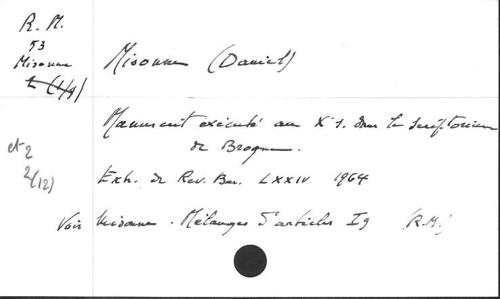 R. M.
53
Misonne
2 (1/9)
et 2
2(12)
Misonne (Daniel)
Manuscrit exécuté au Xe s. dans le scriptorium
de Brogne.
Extr. de Rev. Ben. LXXIV 1964
Voir Misonne. Mélanges d'articles I9 (R.M.)